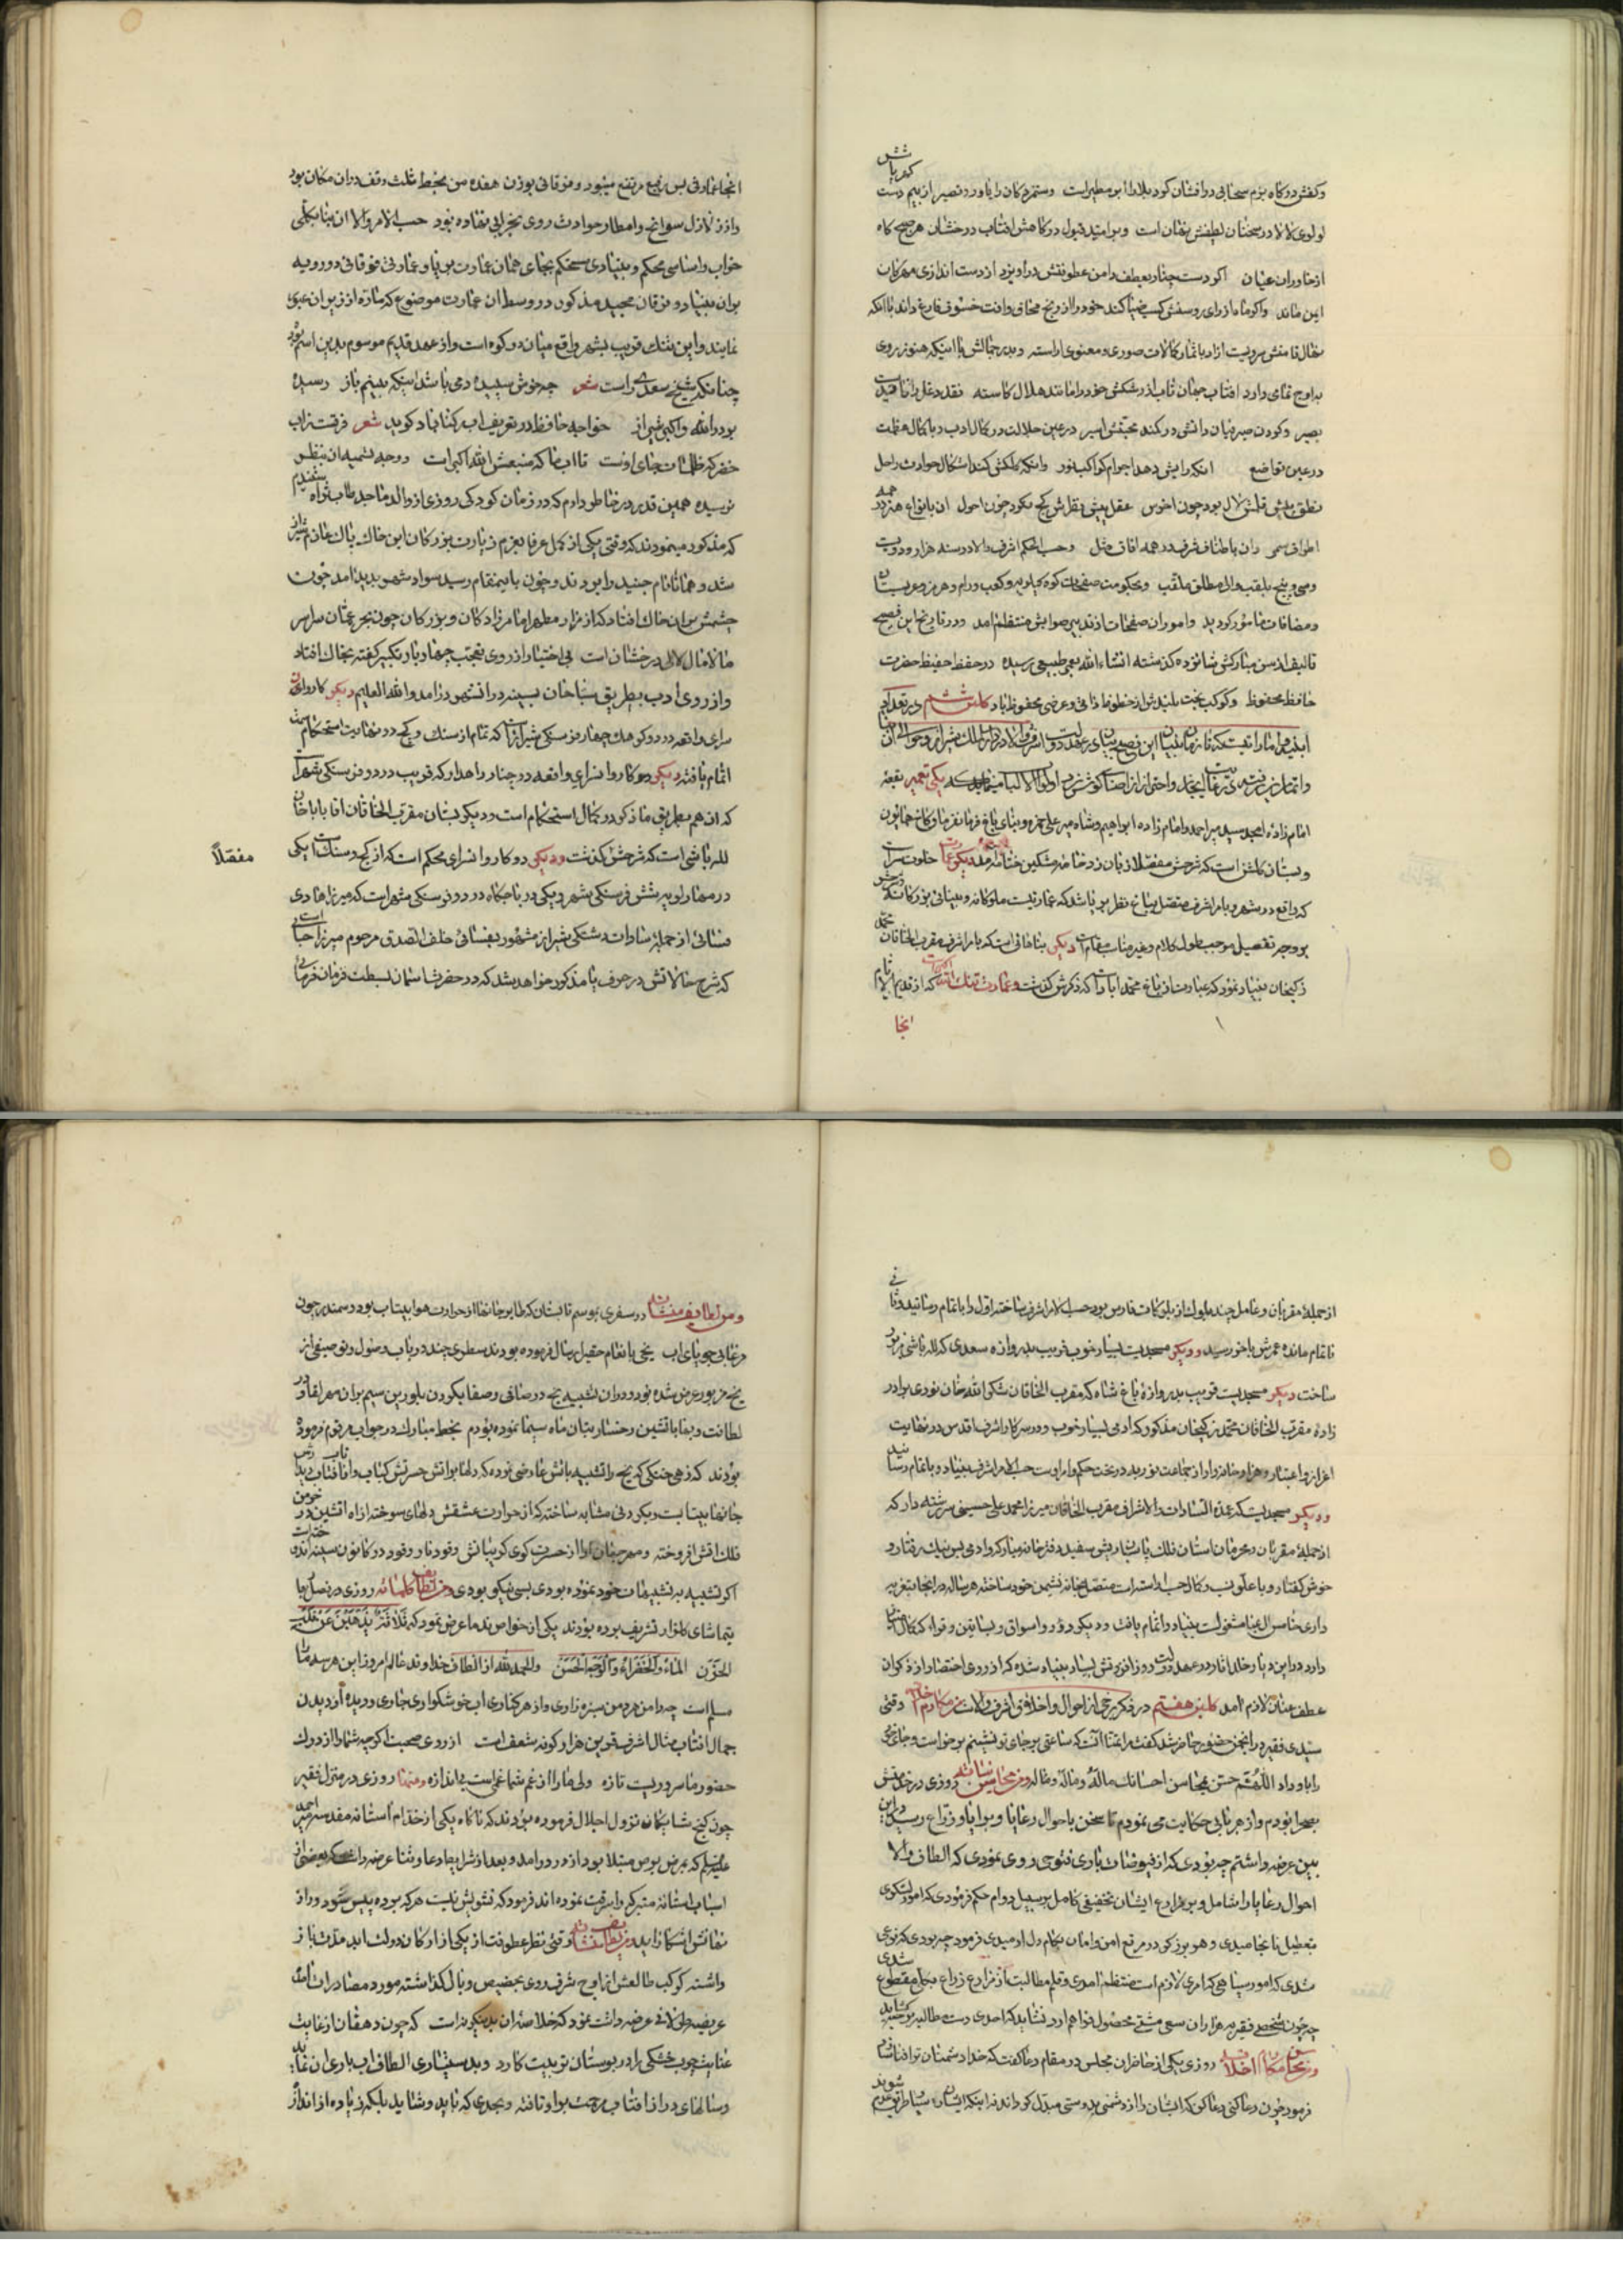 گهرپاشش
وکفش دو کاه بزم سخا بی در افشان کوه بلا را ابر مطیر است و ستمردکان را یاور و نصیر از بیم دست
لولوی لالا در سخنان لطیفش پنهان است و بر امید قبول درکاهش افتاب درخشان هر صبحکاه
از خاوران عیان اکر دست چنار بعطف دامن عطوفتش دراویزد از دست اندازی مهرکان
ایمن ماند و اکر ماه از رای روسفش کسب ضیا کند خود را از رنج محاق و افت خسوف فارغ داند باانکه
نهال قامتش سرویست ازاد باثمار کمالات صوری و معنوی اراسته و بدر جمالش با اینکه هنوز بروی
براوج تمامی دارد افتاب جهان تاب از رشکش خود را مانند هلال کاسته نقد دغل را ناقدیست
بصیر و کردن میرمیان دانش در کمند محبتش اسیر در عین جلالت در کمال ادب و با کمال عظمت
در عین تواضع انکه رایش دهد اجرام کواکب نور و انکه کلکش کند اشکال حوادث را حل
نطق پیش قلمش لال بود چون اخرس عقل پیش نظرش کج نکرد چون احول ان بانواع هنر در همه
اطراف سمر وان باصناف شرف در همه افاق مثل و حسب الحکم اشرف والا در سنه هزار و دویست
و سی و پنج بلقب والی مطلق ملقب و بحکومت صفحات کوه کیلویه و کعب و رام و هرمز و عربستان
و مضافات مامور کردید و امور ان صفحات از تدبیر صوابش منتظم امد و در تاریخ این فصیح
تالیف از سن مبارکش شانزده کذشته انشاء الله بعمر طبیعی رسیده در حفظ حفیظ حضرت
حافظ محفوظ و کوکب بخت بلندش از خطوط ذاتی و عرضی محفوظ باد کلبن ششم در تعداد
ابنیه و اماراتیست که تا زمان تبیان این فصیح بیان در عهد دولت اشرف والا در دار الملک شیراز و حوالی ان
و اتمام پذیرفته برعایت ایجاز و احتراز از اطناب کوش زد اولوا الالباب میشود یکی تعمیر بقعه
امام زاده امجد سید میر احمد و امام زاده ابراهیم و شاه میر علی حمزه و بنای باغ فرمانفرما و کلاه همایون
و بستان کلشن است که شرحش مفصلا از زبان زد خامه مشکین ختامه شد دیکر عمارت خلوت سراست
که واقع در شهر و بامر اشرف متصل بباغ نظر برپا شد که عمارتیست ملوکانه و بنیانی بزرکانه که شرحش
بروجه تفصیل موجب طول کلام و غیر مناسب مقام است دیکر بناهائی است که بامر اشرف مقرب الخاقان محمد
زکیخان بنیاد نمود که عبارت از باغ محمد ابادست که ذکرش کذشت و عمارت تنک الله اکبر است که از قدیم الایام
انجا
انجا عمارتی بس رفیع مرتفع میبود و فوقانی بوزن هفده من بخط ثلث وقف دران مکان بود
و از نوازل سوانح و امطار حوادث روی بخرابی نهاده بود حسب الامر والا ان بنا بکلی
خراب و اساسی محکم و بنیادی مستحکم بجای همان عمارت برپا و عمارتی فوقانی دورویه
بران بنیاد و فرقان مجید مذکور در وسط ان عمارت موضوع که ماره از زیر ان عبور
نمایند و این تنک قریب بشهر واقع میان دو کوه است و از عهد قدیم موسوم بدین اسم بود
چنانکه شیخ سعدی راست شعر چه خوش سپیده دمی باشد اینکه بینم باز رسیده
بود الله واکبر شیراز خواجه حافظ در تعریف اب رکناباد کوید شعر فرقست ز اب
خضر که ظلمات جای اوست تا اب ما که منبعش الله اکبر است و وجه تسمیه ان بنظر
نرسیده همین قدر در خاطر دارم که در زمان کودکی روزی از والد ماجد طاب ثراه شنیدم
که مذکور مینمودند که وقتی یکی از کمل عرفا بعزم زیارت بزرکان این خاک پاک عازم شیراز
شد و همانا نام جنید را بودند و چون باینمقام رسید سواد شهر پدید امد چون
چشمش بران خاک افتاد که از مزار مطهر امامزادکان و بزرکان چون بحر عمان سراسر
مالامال لالی درخشان است بی اختیار از روی تعجب چهار بار تکبیر کفته بخاک افتاد
و از روی ادب بطریق سباحان بسینه در انشهر درامد و الله العلیم دیکر کاروان
سرای واقعه در دو کوهک چهار فرسنکی شیراز است که تمام از سنک و کچ در نهایت استحکام
اتمام یافته دیکر دو کاروانسرای واقعه در چنار راهدار که قریب در دو فرسنکی شهر است
که ان هم بطریق ماذکر در کمال استحکام است و دیکر بستان مقرب الخاقان اقا بابا خان
لله باشی است که شرحش کذشت و دیکر دو کاروانسرای محکم است که از کچ و سنک است یکی مفصلاً
در مهارلویه شش فرسنکی شهر و یکی در باجکاه در دو فرسنکی شهر است که میرزا هادی
فسائی از جمله سادات دشتکی شیراز مشهور بفسائی خلف الصدق مرحوم میرزا جانی است
که شرح حالاتش در حرف یا مذکور خواهد شد که در حضرت اسمان بسطت فرمانفرمائی
از جمله مقربان و عامل چند بلوک از بلوکات فارس بود حسب الامر اشرف ساخته اول را باتمام رسانید و ثانی
ناتمام مانده عمرش باخر رسید و دیکر مسجدیست بسیار خوب قریب بدروازه سعدی که لله باشی مزبور
ساخت دیکر مسجدیست قریب بدروازه باغ شاه که مقرب الخاقان شکر الله خان نوری برادر
زاده مقرب الخاقان محمد زکیخان مذکور که ادمی بسیار خوب و در سرکار اشرف اقدس در نهایت
اعزاز و اعتبار و هزار خانه وار از جماعت نوریه در تحت حکم و امر اوست حسب الامر اشرف بنیاد و باتمام رسانید
و دیکر مسجدیست که عمدة السادات و الاشراف مقرب الخاقان میرزا محمد علی حسینی سررشته دار که
از جمله مقربان و محرمان استان فلک پاسبان و ریش سفید دفترخانه مبارکه و ادمی بس نیک رفتار و
خوش کفتار و باعلو نسب و کمال حسب اراسته است متصل بخانه نشیمن خود ساخته هر ساله در انجا بتعزیه
داری خامس ال عبا مشغولست بنیاد و اتمام یافت و دیکر دور و اسواق و بساتین و قراء که کمال
دارد در این دیار خلد اثار در عهد دولت روزافزونش بسیار بنیاد شده که از روی اختصار از ذکر ان
عطف عنان لازم امد کلبن هفتم در ذکر برخی از احوال و اخلاق اشرف والا است من مکارم اخلاقه وقتی
سیدی فقیر در انجمن حضور حاضر شد کفت مرا تمنا انست که ساعتی بر جای تو نشینم برخواست و جای خود
را باو داد اللهم حسن محاسن احسانک ماله و مآله و من محاسن شانه روزی در خدمتش
بصحرا بودم و از هر بابی حکایت می نمودم تا سخن باحوال رعایا و برایا و زراع رسید در این
بین عرضه داشتم چه بودی که از فیوضات باری فتوحی روی نمودی که الطاف والا
احوال رعایا را شامل و بر مزارع ایشان تخفیفی کامل بر سبیل دوام حکم فرمودی که امور لشکری
بتعطیل نانجامیدی و هر بزرکی در مرتع امن و امان بکام دل ارمیدی فرمود چه بودی که نوعی
شدی که امور سپاهی که امری لازم است منتظم امدی و قلم مطالبت از مزارع زراع بجمله مقطوع شدی
چه چون شخصی فقیر به هزاران سعی مشتی محصول فراهم ارد نشاید که احدی دست مطالبه بر خوشه کشاید
و من مکارم اخلاقه روزی یکی از حاضران مجلس در مقام دعا کفت که خدا دشمنان ترا فنا سازد
فرمود چون دعا کنی دعا کن که ایشان را از دشمنی بدوستی مبدل کرداند نه اینکه ایشان سپار طریق عدم شوند
و من لطایف منشاته در سفری بموسم تابستان که طایر جانها از حرارت هوا بیتاب بود و سمندر چون
مرغابی جویای اب یخی بانعام حقیر ارسال فرموده بودند سطری چند در باب وصول و توصیفی از
یخ مزبور عرض شده بود و دران تشبیه یخ در صافی و صفا بکردن بلورین سیم بران مهر لقا و در
لطافت و بها باتشین رخسار بتان ماه سیما نموده بودم بخط مبارک در جواب مرقوم فرموده
بودند که زهی خنکی که یخ را تشبیه باتش عارضی نموده که دلها بر اتش حسرتش کباب و از افتاب دیدارش
جانها بیتابست و بکردنی مشابه ساخته که از حرارت عشقش دلهای سوخته از اه اتشین در خرمن
فلک اتش افروخته و مهر جبینان را از حسرت کوی کریبانش وقود نار وفود در کانون سینه اندوخته
اکر تشبیه به تشبیهات خود نموده بودی بسی نیکو بودی و من لطایف کلماته روزی در فصل بهار
بتماشای کلزار تشریف برده بودند یکی از خواص ندما عرض نمود که ثَلاثَةٌ یُذْهِبْنَ عَنْ قَلْبِ
الحَزَن المَاءُ وَالخَضْرَاءُ وَالوَجْهُ الحَسَن والحمد لله از الطاف خداوند عالم امروز این هر سه ما را
مسلم است چه دامن هر دمن سبزه زاری و از هر کناری اب خوشکواری جاری و دیده از دیدن
جمال افتاب مثال اشرف قرین هزار کونه شعف است از روی صحبت اکرچه شما را از درک
حضور ما سروریست تازه ولی ما را از غم شما غمی است بی اندازه ومنها روزی در منزل فقیر
چون کنج شایکان نزول اجلال فرموده بودند که ناکاه یکی از خدام استانه مقدسه میر احمد
که بمرض برص مبتلا بود از در درامد و بعد از شرایط دعا و ثنا عرضه داشت که بعضی از
اسباب استانه متبرکه را سرقت نموده اند فرمود که تشویش نیست هر که برده پیس شود و راز
نهانش اشکارا اید و من لطایف منشاته وقتی نظر عطوفت از یکی از ارکان دولت ابد مدت باز
داشته کوکب طالعش از اوج شرف روی بحضیض وبال کذاشته مورد مصادرات امد
عریضه طولانی عرضه داشت نمود که خلاصه ان بدینکونه است که چون دهقان از غایت
عنایت چوب خشکی را در بوستان تربیت کارد و بدستیاری الطاف اب یاری ان نماید
و سالهای دراز افتاب مرحمت بر او تافته و بحدی که باید و شاید بلکه زیاده از اندازه